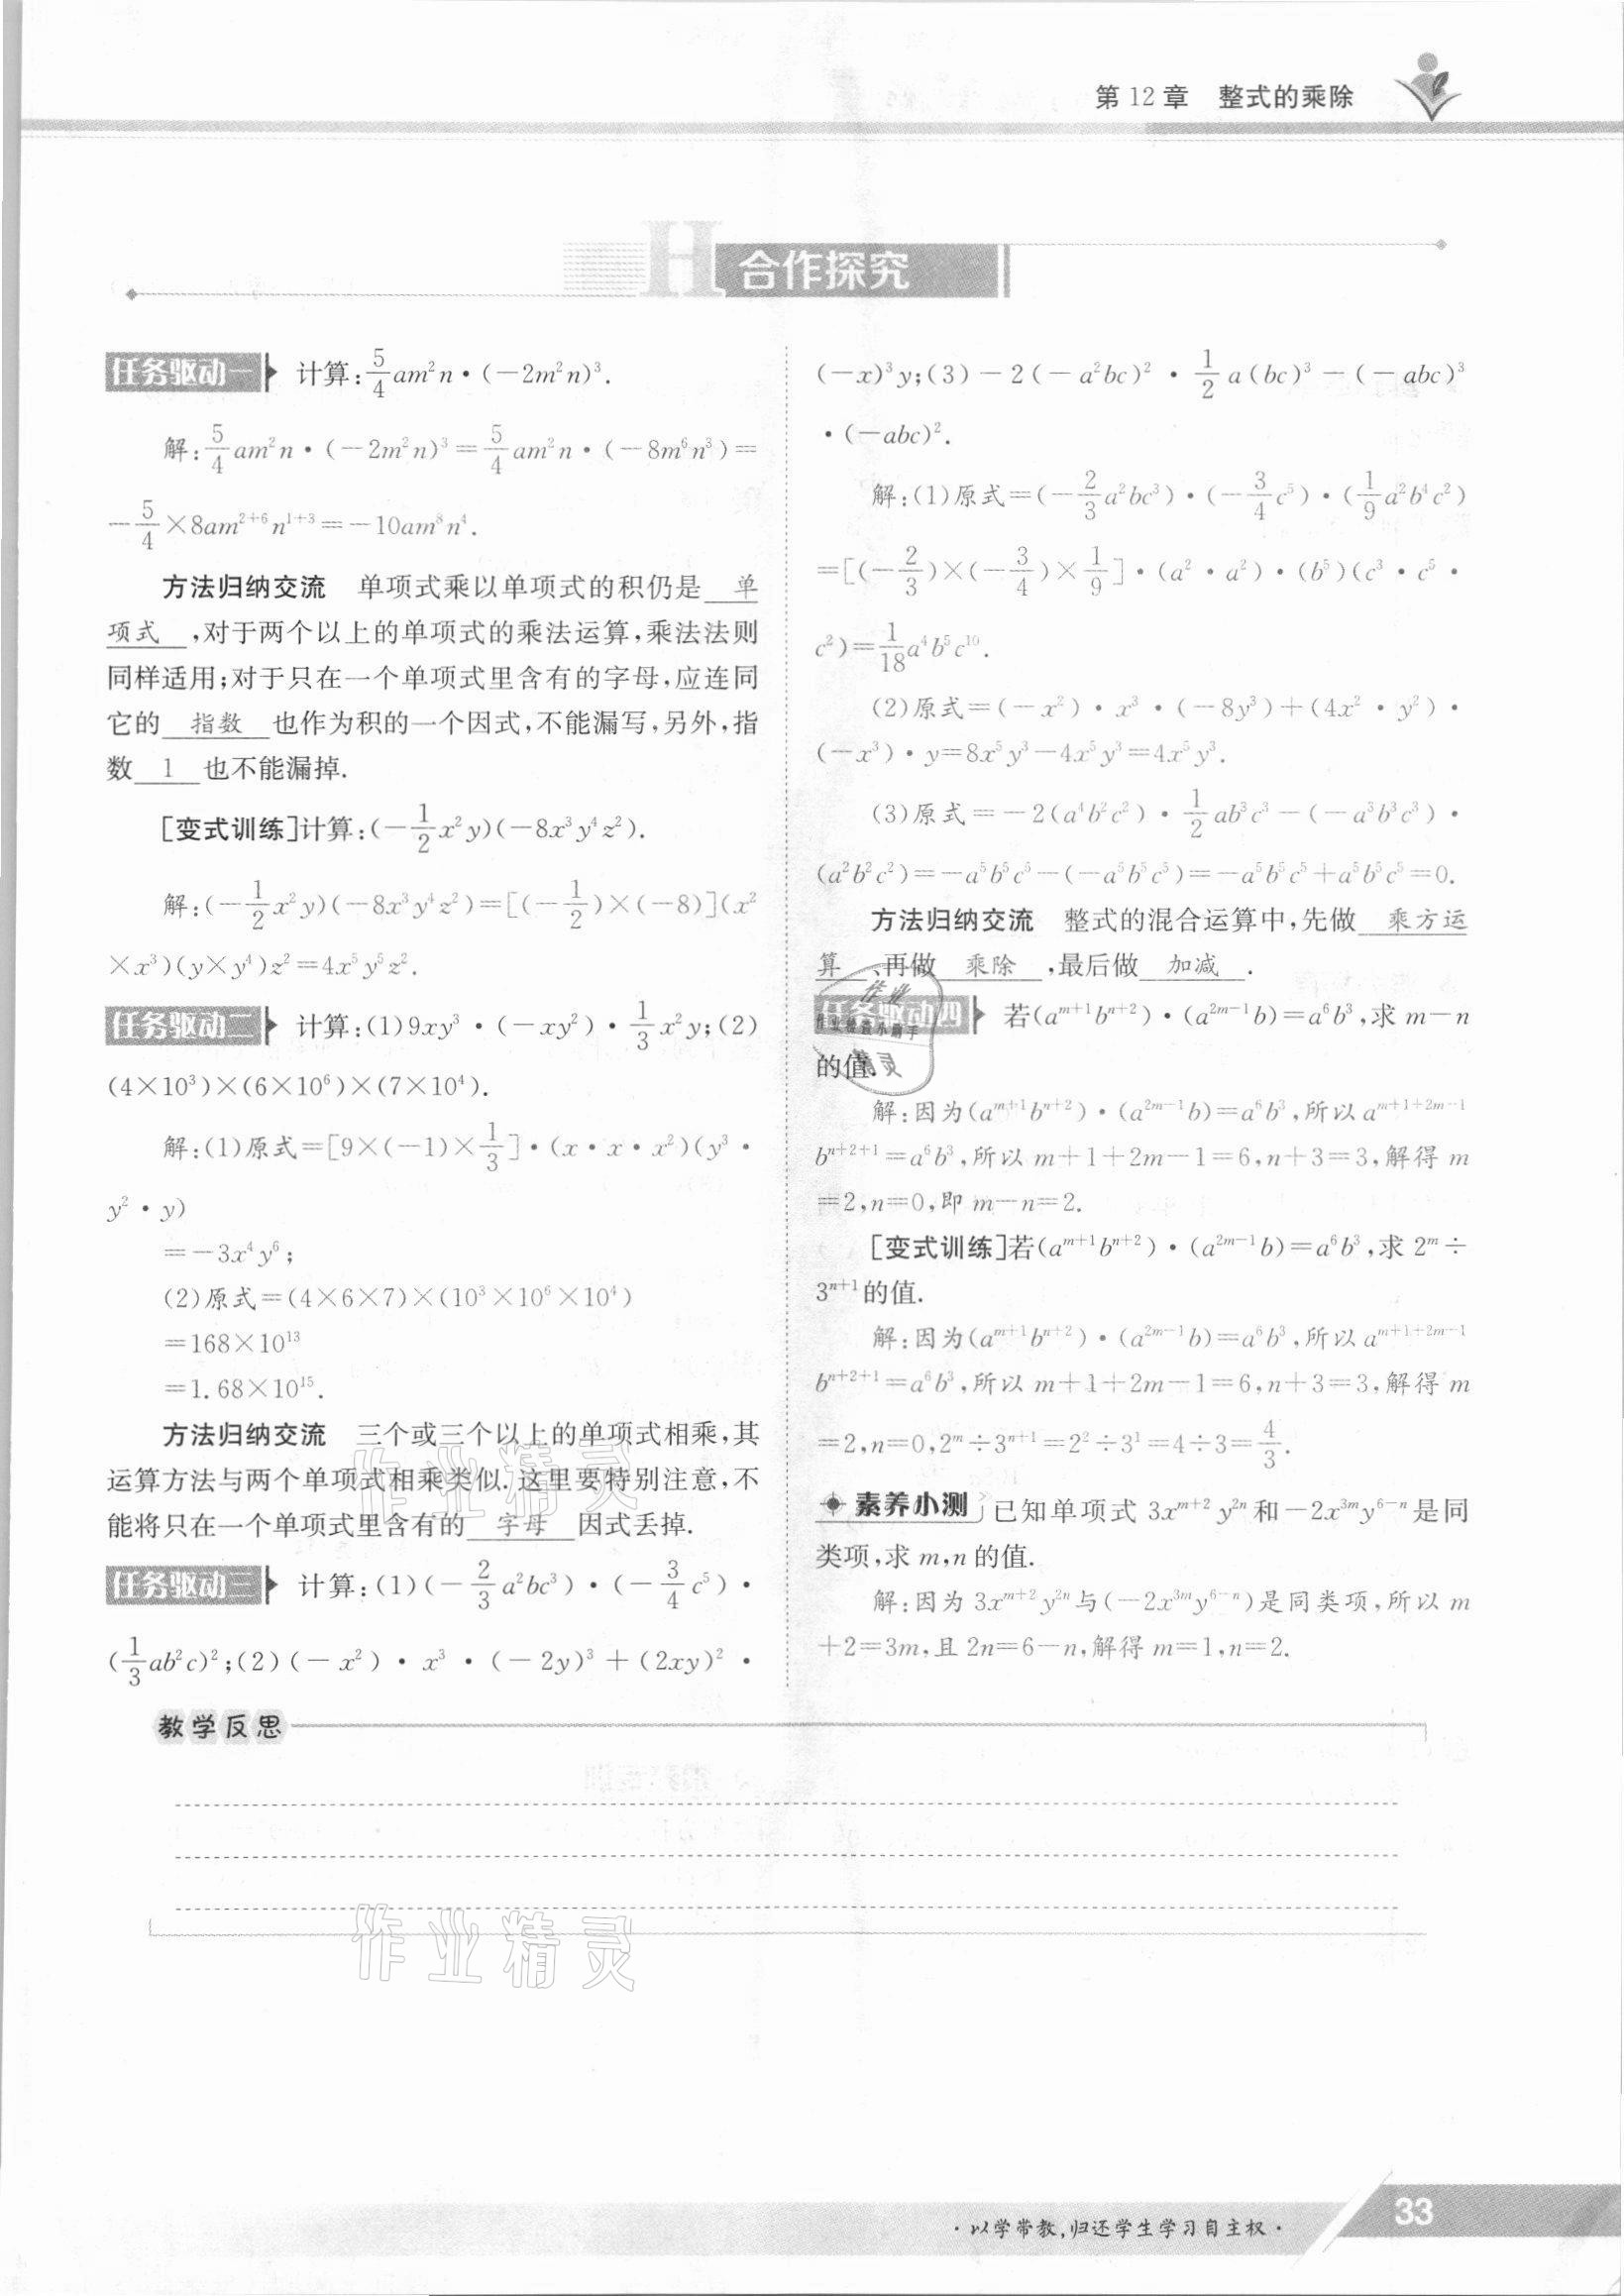 第 12 章　整式的乘除
H 合作探究
任务驱动一　计算:$\frac{5}{4}am^2n·(-2m^2n)^3$.
解:$\frac{5}{4}am^2n·(-2m^2n)^3=\frac{5}{4}am^2n·(-8m^6n^3)=$
$-\frac{5}{4}×8am^{2+6}n^{1+3}=-10am^8n^4$.
方法归纳交流　单项式乘以单项式的积仍是 单
项式 ,对于两个以上的单项式的乘法运算,乘法法则
同样适用;对于只在一个单项式里含有的字母,应连同
它的 指数 也作为积的一个因式,不能漏写,另外,指
数 1 也不能漏掉.
[变式训练]计算:$(-\frac{1}{2}x^2y)(-8x^3y^4z^2)$.
解:$(-\frac{1}{2}x^2y)(-8x^3y^4z^2)=[(-\frac{1}{2})×(-8)](x^2$
$×x^3)(y×y^4)z^2=4x^5y^5z^2$.
任务驱动二　计算:(1)$9xy^3·(-xy^2)·\frac{1}{3}x^2y$;(2)
$(4×10^3)×(6×10^6)×(7×10^4)$.
解:(1)原式$=[9×(-1)×\frac{1}{3}]·(x·x·x^2)(y^3·$
$y^2·y)$
$=-3x^4y^6$;
(2)原式$=(4×6×7)×(10^3×10^6×10^4)$
$=168×10^{13}$
$=1.68×10^{15}$.
方法归纳交流　三个或三个以上的单项式相乘,其
运算方法与两个单项式相乘类似.这里要特别注意,不
能将只在一个单项式里含有的 字母 因式丢掉.
任务驱动三　计算:(1)$(-\frac{2}{3}a^2bc^3)·(-\frac{3}{4}c^5)·$
$(\frac{1}{3}ab^2c)^2$;(2)$(-x^2)·x^3·(-2y)^3+(2xy)^2·$
$(-x)^3y$;(3)$-2(-a^2bc)^2·\frac{1}{2}a(bc)^3-(-abc)^3$
$·(-abc)^2$.
解:(1)原式$=(-\frac{2}{3}a^2bc^3)·(-\frac{3}{4}c^5)·(\frac{1}{9}a^2b^4c^2)$
$=[(-\frac{2}{3})×(-\frac{3}{4})×\frac{1}{9}]·(a^2·a^2)·(b^5)(c^3·c^5·$
$c^2)=\frac{1}{18}a^4b^5c^{10}$.
(2)原式$=(-x^2)·x^3·(-8y^3)+(4x^2·y^2)·$
$(-x^3)·y=8x^5y^3-4x^5y^3=4x^5y^3$.
(3)原式$=-2(a^4b^2c^2)·\frac{1}{2}ab^3c^3-(-a^3b^3c^3)·$
$(a^2b^2c^2)=-a^5b^5c^5-(-a^5b^5c^5)=-a^5b^5c^5+a^5b^5c^5=0$.
方法归纳交流　整式的混合运算中,先做 乘方运
算 、再做 乘除 ,最后做 加减 .
任务驱动四　若$(a^{m+1}b^{n+2})·(a^{2m-1}b)=a^6b^3$,求 $m-n$
的值.
解:因为$(a^{m+1}b^{n+2})·(a^{2m-1}b)=a^6b^3$,所以 $a^{m+1+2m-1}$
$b^{n+2+1}=a^6b^3$,所以 $m+1+2m-1=6,n+3=3$,解得 $m$
$=2,n=0$,即 $m-n=2$.
[变式训练]若$(a^{m+1}b^{n+2})·(a^{2m-1}b)=a^6b^3$,求 $2^m÷$
$3^{n+1}$的值.
解:因为$(a^{m+1}b^{n+2})·(a^{2m-1}b)=a^6b^3$,所以 $a^{m+1+2m-1}$
$b^{n+2+1}=a^6b^3$,所以 $m+1+2m-1=6,n+3=3$,解得 $m$
$=2,n=0,2^m÷3^{n+1}=2^2÷3^1=4÷3=\frac{4}{3}$.
素养小测　已知单项式 $3x^{m+2}y^{2n}$ 和 $-2x^{3m}y^{6-n}$ 是同
类项,求 m,n 的值.
解:因为 $3x^{m+2}y^{2n}$ 与$(-2x^{3m}y^{6-n})$是同类项,所以 $m$
$+2=3m$,且 $2n=6-n$,解得 $m=1,n=2$.
教学反思
作业精灵
作业精灵
·以学带教,归还学生学习自主权·
33